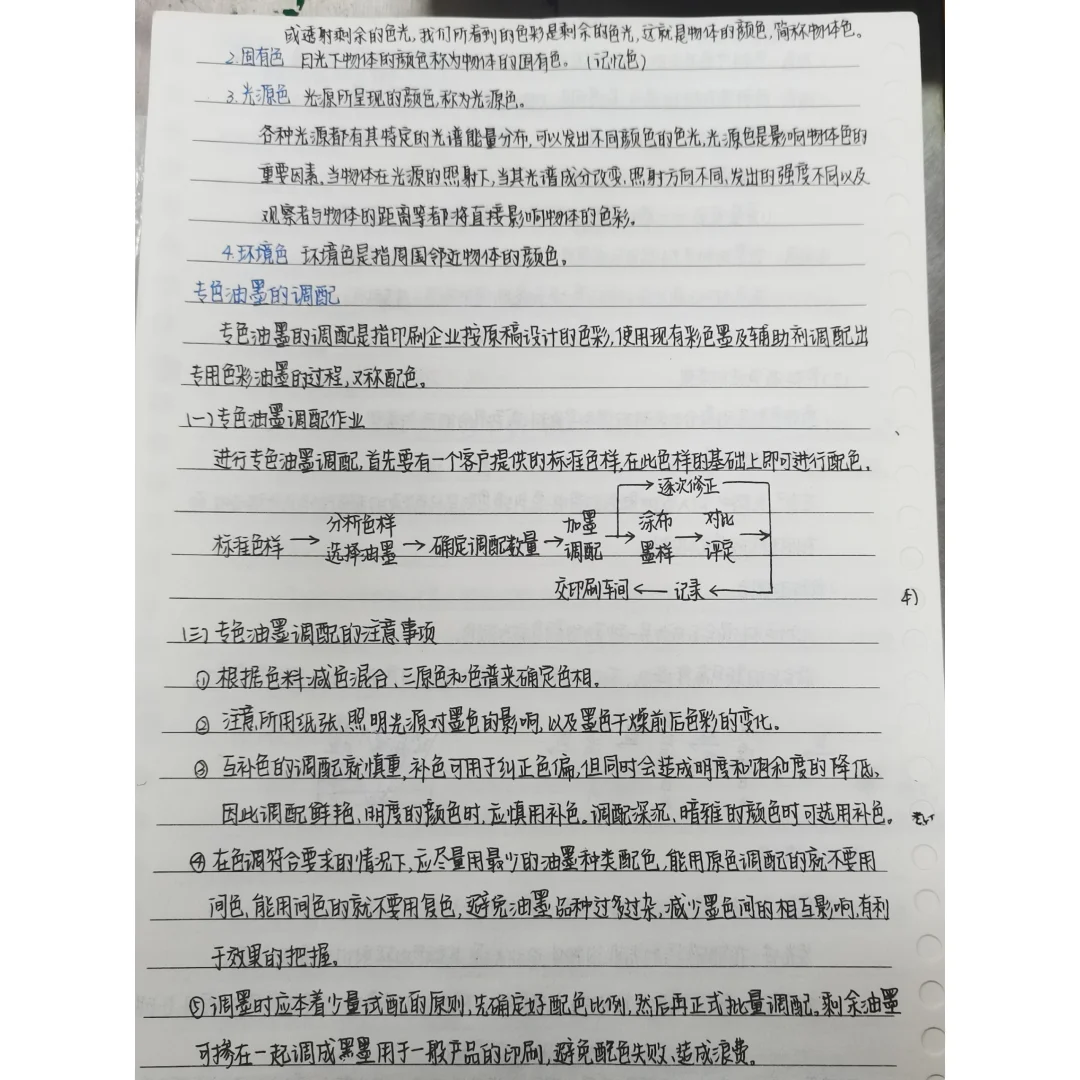 或透射剩余的色光,我们所看到的色彩是剩余的色光,这就是物体的颜色,简称物体色。
2.固有色 日光下物体的颜色称为物体的固有色。(记忆色)
3.光源色 光源所呈现的颜色,称为光源色。
各种光源都有其特定的光谱能量分布,可以发出不同颜色的色光,光源色是影响物体色的
重要因素,当物体在光源的照射下,当其光谱成分改变、照射方向不同、发出的强度不同以及
观察者与物体的距离等都将直接影响物体的色彩。
4.环境色 环境色是指周围邻近物体的颜色。
专色油墨的调配
专色油墨的调配是指印刷企业按原稿设计的色彩,使用现有彩色墨及辅助剂调配出
专用色彩油墨的过程,又称配色。
(一)专色油墨调配作业
进行专色油墨调配,首先要有一个客户提供的标准色样,在此色样的基础上即可进行配色。
→逐次修正
标准色样 → 分析色样 选择油墨 → 确定调配数量 → 加墨 调配 → 涂布 墨样 → 对比 评定 →
交印刷车间 ← 记录 ←
(三)专色油墨调配的注意事项
① 根据色料减色混合、三原色和色谱来确定色相。
② 注意所用纸张、照明光源对墨色的影响,以及墨色干燥前后色彩的变化。
③ 互补色的调配就慎重,补色可用于纠正色偏,但同时会造成明度和饱和度的降低、
因此调配鲜艳、明度的颜色时,应慎用补色。调配深沉、暗雅的颜色时可选用补色。
④ 在色调符合要求的情况下,应尽量用最少的油墨种类配色,能用原色调配的就不要用
间色,能用间色的就不要用复色,避免油墨品种过多过杂,减少墨色间的相互影响,有利
于效果的把握。
⑤ 调墨时应本着少量试配的原则,先确定好配色比例,然后再正式批量调配。剩余油墨
可掺在一起调成黑墨用于一般产品的印刷,避免配色失败、造成浪费。